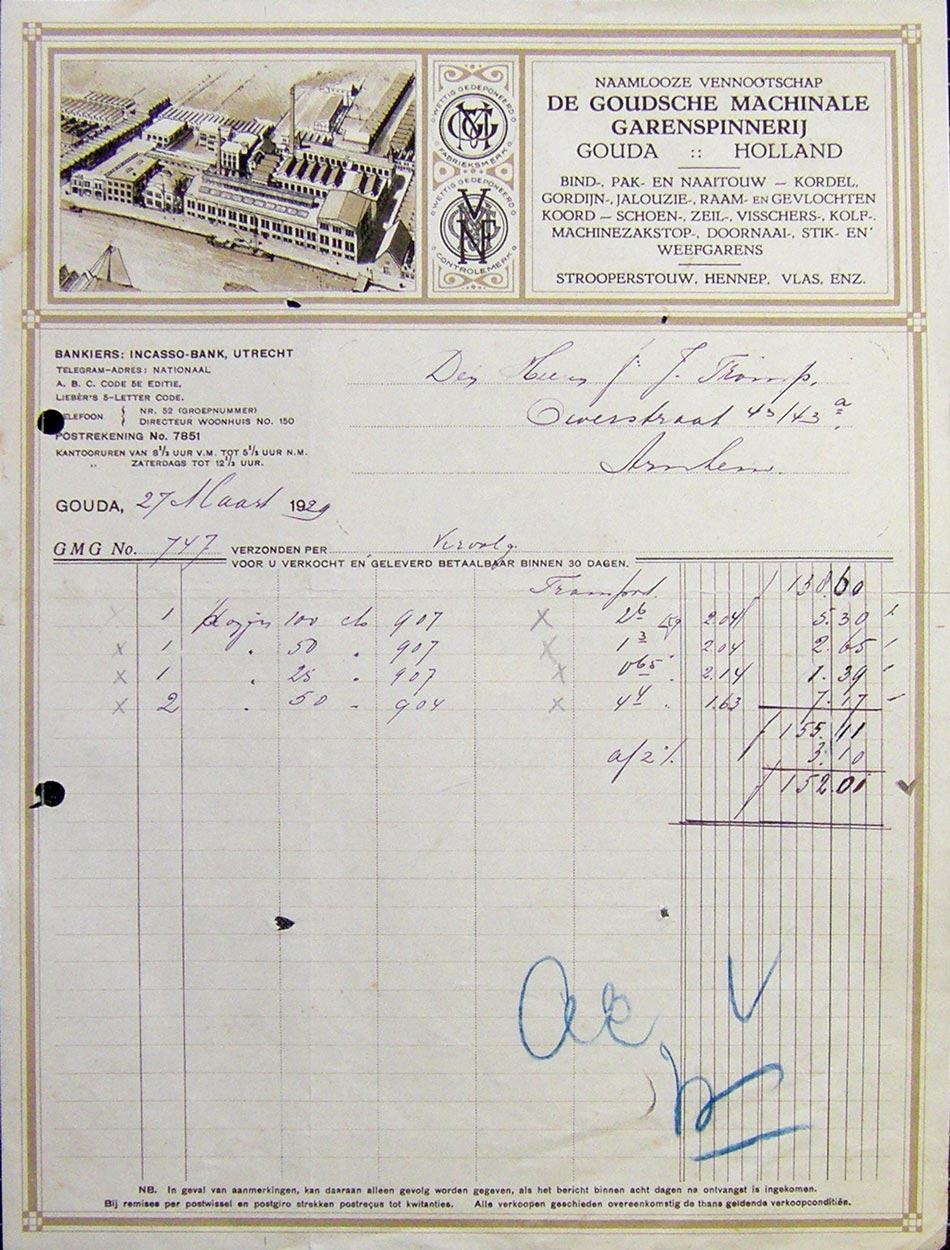 NAAMLOOZE VENNOOTSCHAP
DE GOUDSCHE MACHINALE
GARENSPINNERIJ
GOUDA :: HOLLAND
BIND-, PAK- EN NAAITOUW — KORDEL,
GORDIJN-, JALOUZIE-, RAAM- EN GEVLOCHTEN
KOORD — SCHOEN-, ZEIL-, VISSCHERS-, KOLF-,
MACHINEZAKSTOP-, DOORNAAI-, STIK- EN
WEEFGARENS
STROOPERSTOUW, HENNEP, VLAS, ENZ.
WETTIG GEDEPONEERD
GMG
FABRIEKSMERK
WETTIG GEDEPONEERD
CONTROLEMERK
BANKIERS: INCASSO-BANK, UTRECHT
TELEGRAM-ADRES: NATIONAAL
A. B. C. CODE 5E EDITIE,
LIEBÈR'S 5-LETTER CODE.
ELEFOON { NR. 52 (GROEPNUMMER)
DIRECTEUR WOONHUIS NO. 150
POSTREKENING No. 7851
KANTOORUREN VAN 8½ UUR V.M. TOT 5½ UUR N.M.
„ ZATERDAGS TOT 12½ UUR.
Den Heer J. J. Tromp,
Oeverstraat 43/43a
Arnhem.
GOUDA, 27 Maart 1929
GMG No. 747 VERZONDEN PER Vervolg.
VOOR U VERKOCHT EN GELEVERD BETAALBAAR BINNEN 30 DAGEN.
Transport. ƒ 138.60
1 100 cts 907 X 2 6 Kg 2.04 5.30
X 1 „ 50 „ 907 X 1 3 „ 2.04 2.65
X 1 „ 25 „ 907 X 0 65 „ 2.14 1.39
X 2 „ 50 „ 904 X 4 4 „ 1.63 7.17
ƒ 155.11
af 2% 3.10
ƒ 152.01
NB. In geval van aanmerkingen, kan daaraan alleen gevolg worden gegeven, als het bericht binnen acht dagen na ontvangst is ingekomen.
Bij remises per postwissel en postgiro strekken postreçus tot kwitanties. Alle verkoopen geschieden overeenkomstig de thans geldende verkoopconditiën.